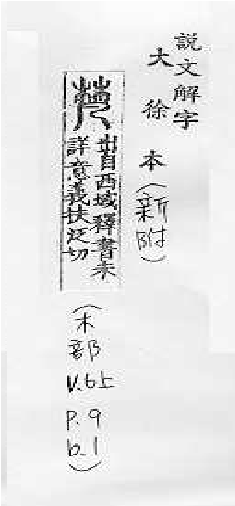 說文解字
大徐本(新附)
梵
出自西域釋書未
詳意義扶泛切
(木部 V.6上 P.9 b.1)